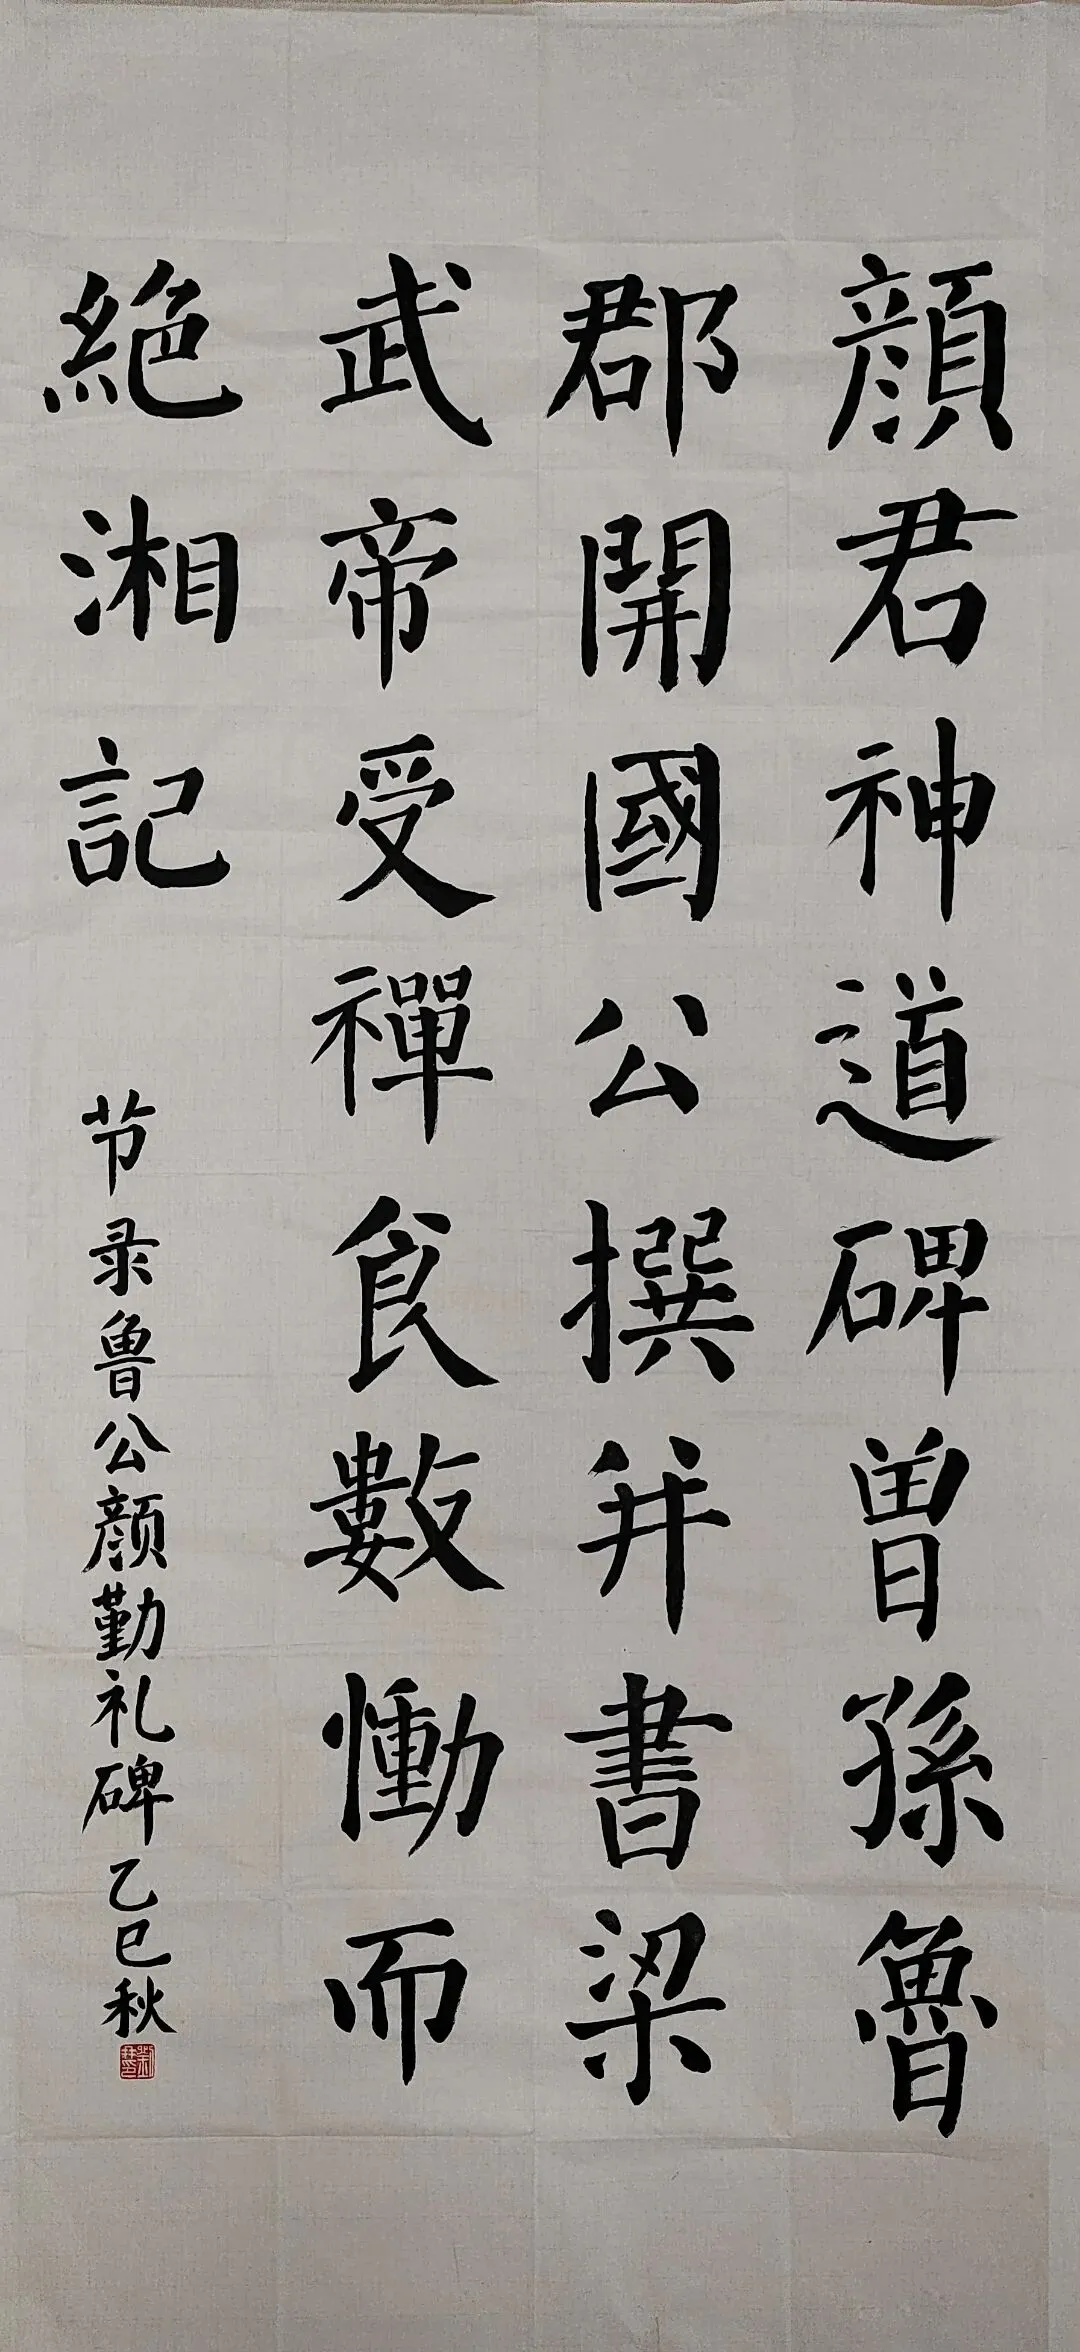 顔君神道碑曽孫魯
郡開國公撰并書梁
武帝受禪食數慟而
絶湘記
节录鲁公颜勤礼碑乙巳秋